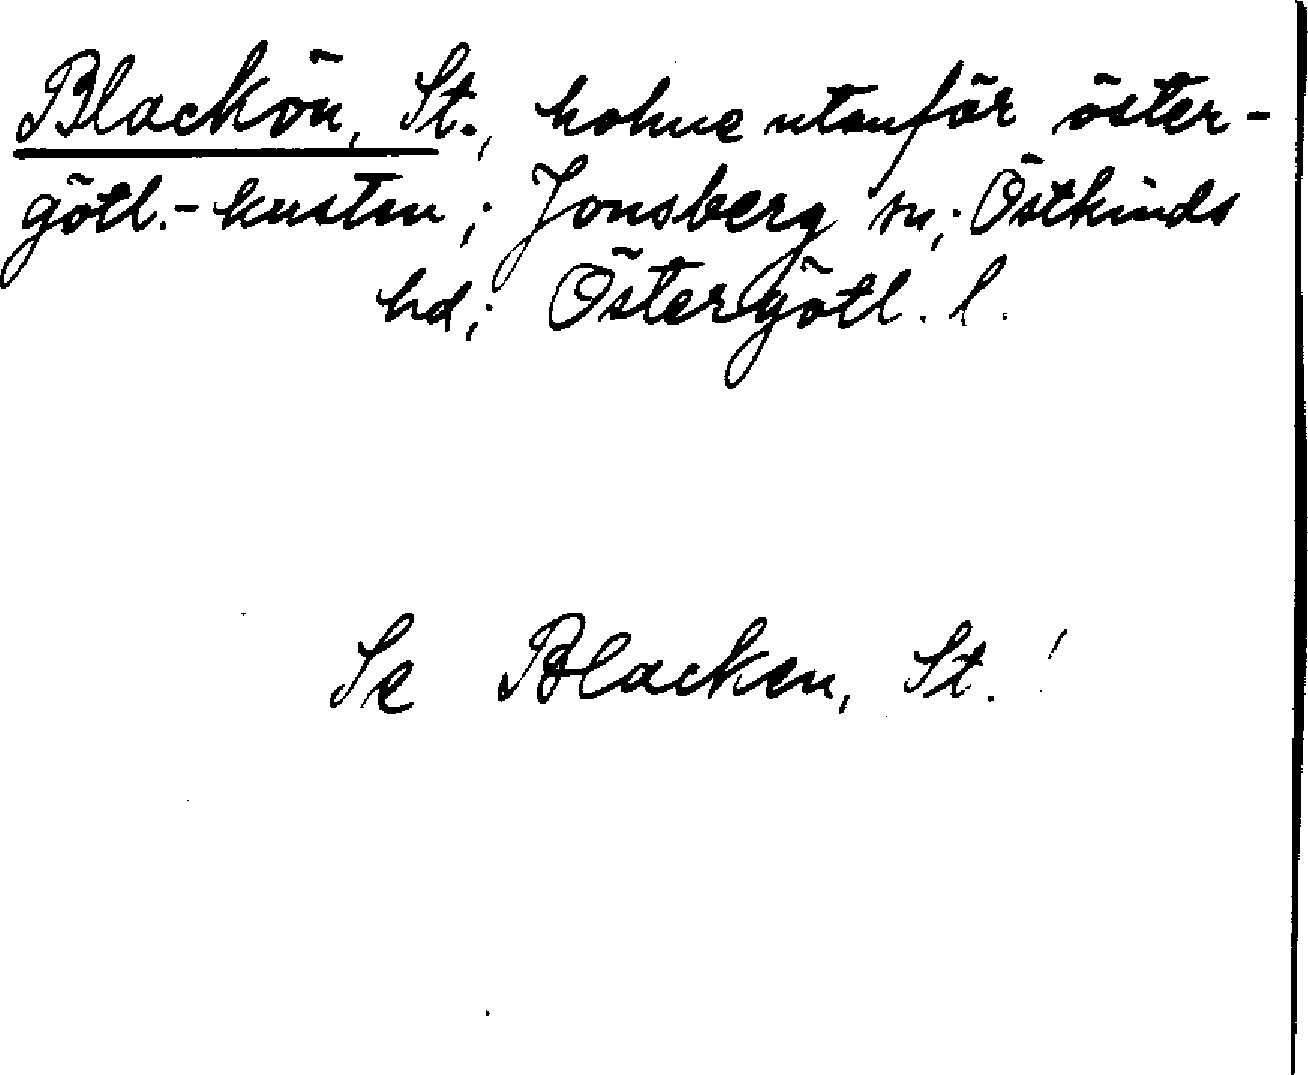 Blackön, St., holme utanför öster-
götl.-kusten; Jonsberg sn; Östkinds
hd; Östergötl. l.
Se Blacken, St.!